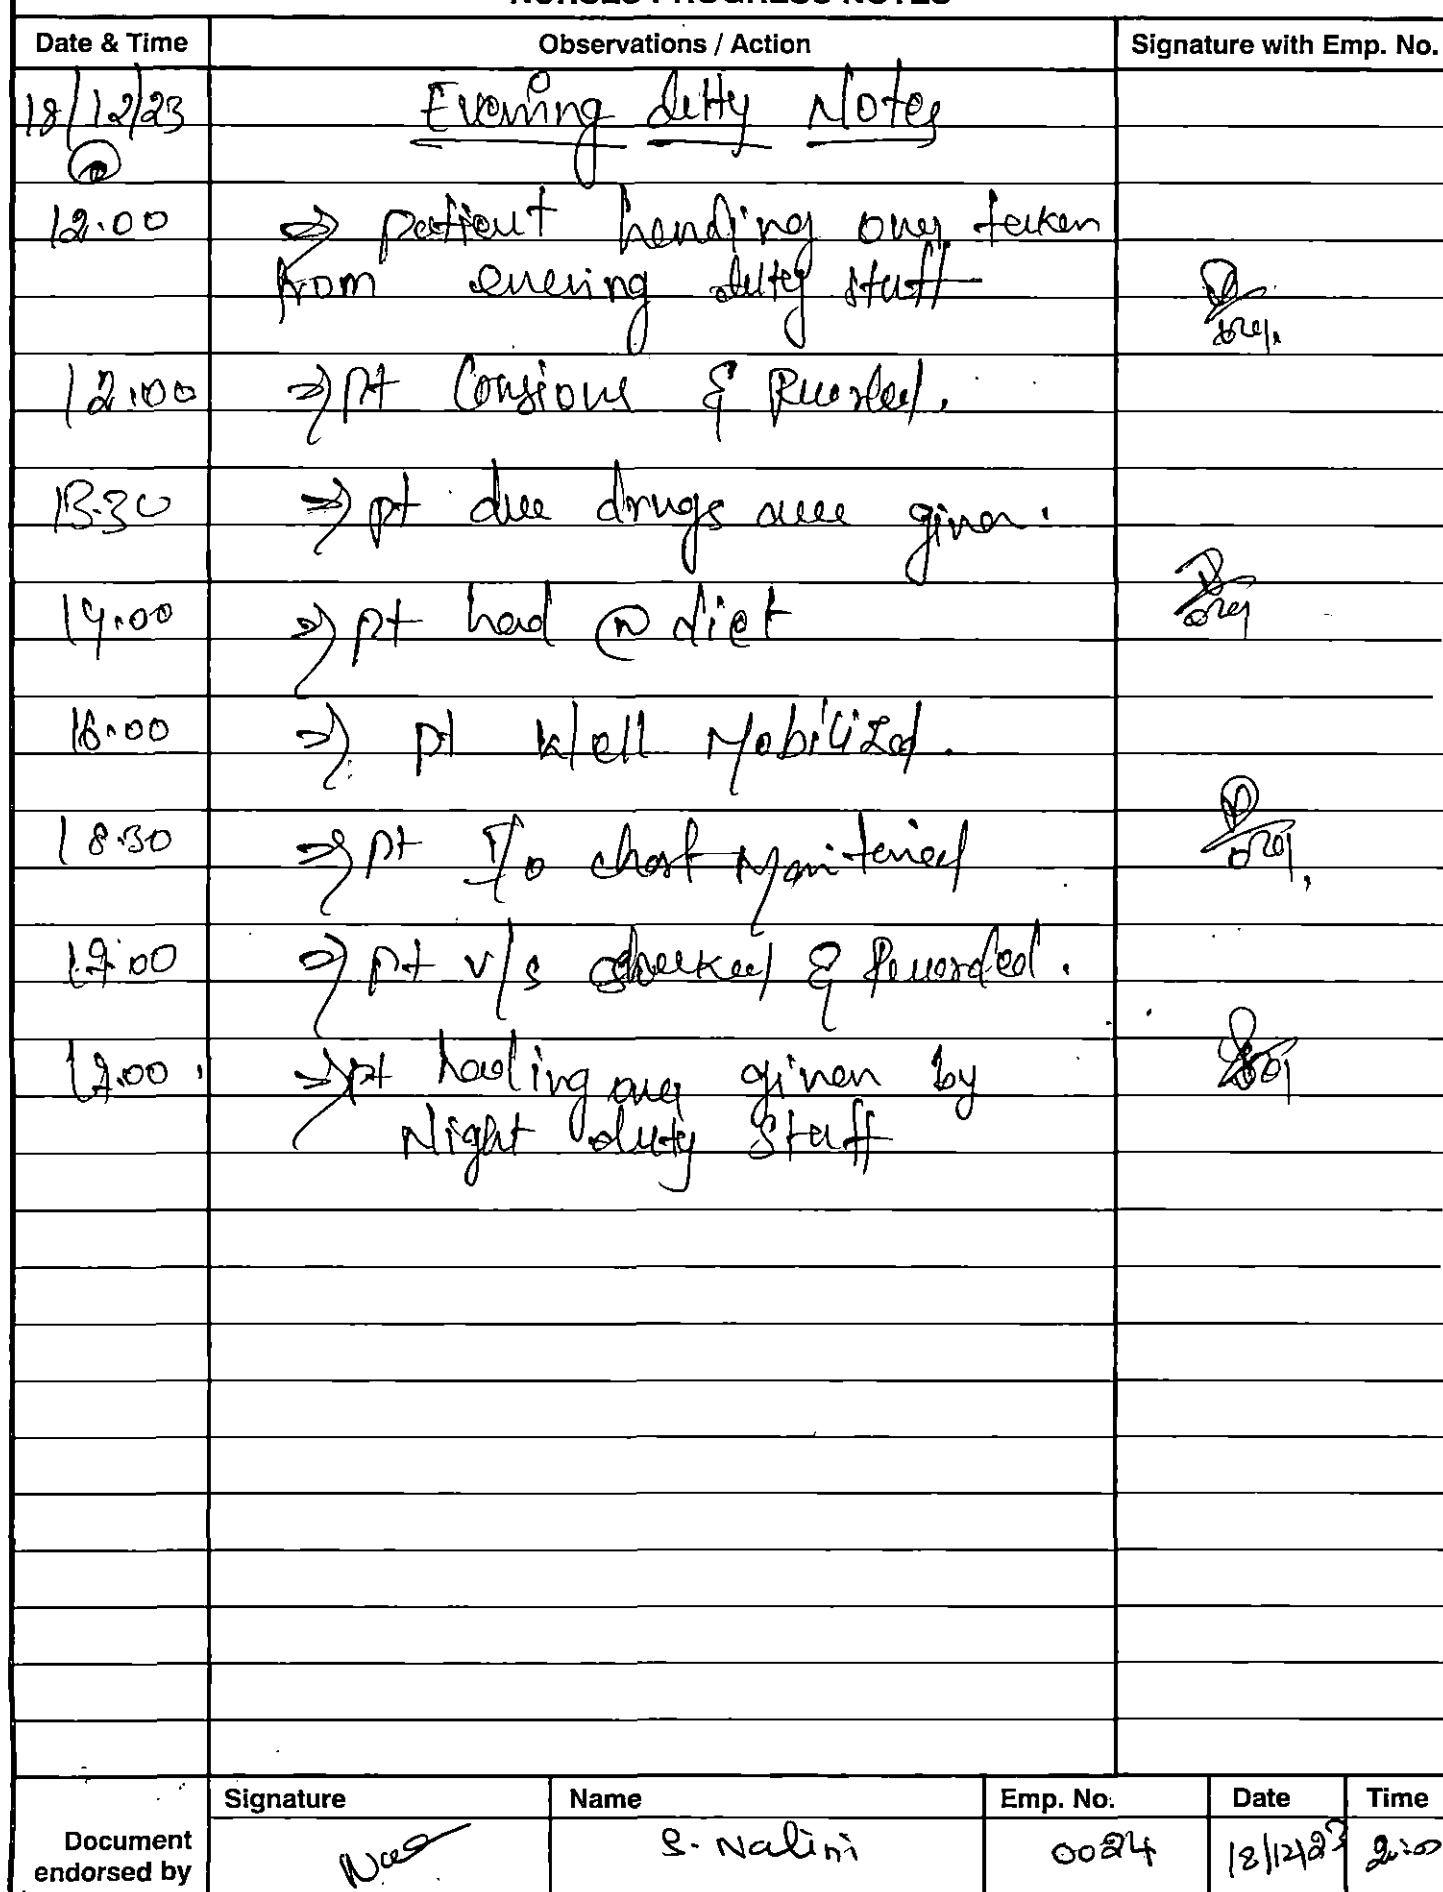 NURSES PROGRESS NOTES
Date & Time Observations / Action Signature with Emp. No.
18/12/23 Evening duty Notes
12.00 => patient handing over taken
from evening duty staff
12.00 => pt Consious & Recorded.
13.30 => pt due drugs are given.
14.00 => pt had (N) diet
16.00 => pt Well Mobilized.
18.30 => pt I/o chart Monitered
19.00 => pt v/s checked & Recorded.
19.00 => pt hading over given by
Night duty Staff
Signature Name Emp. No. Date Time
Document
endorsed by S. Nalini 0024 18/12/23